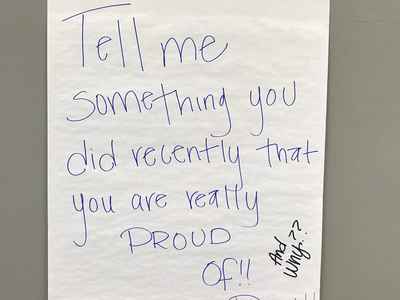 Tell me
something you
did recently that
you are really
PROUD
OF!!
And
Why??